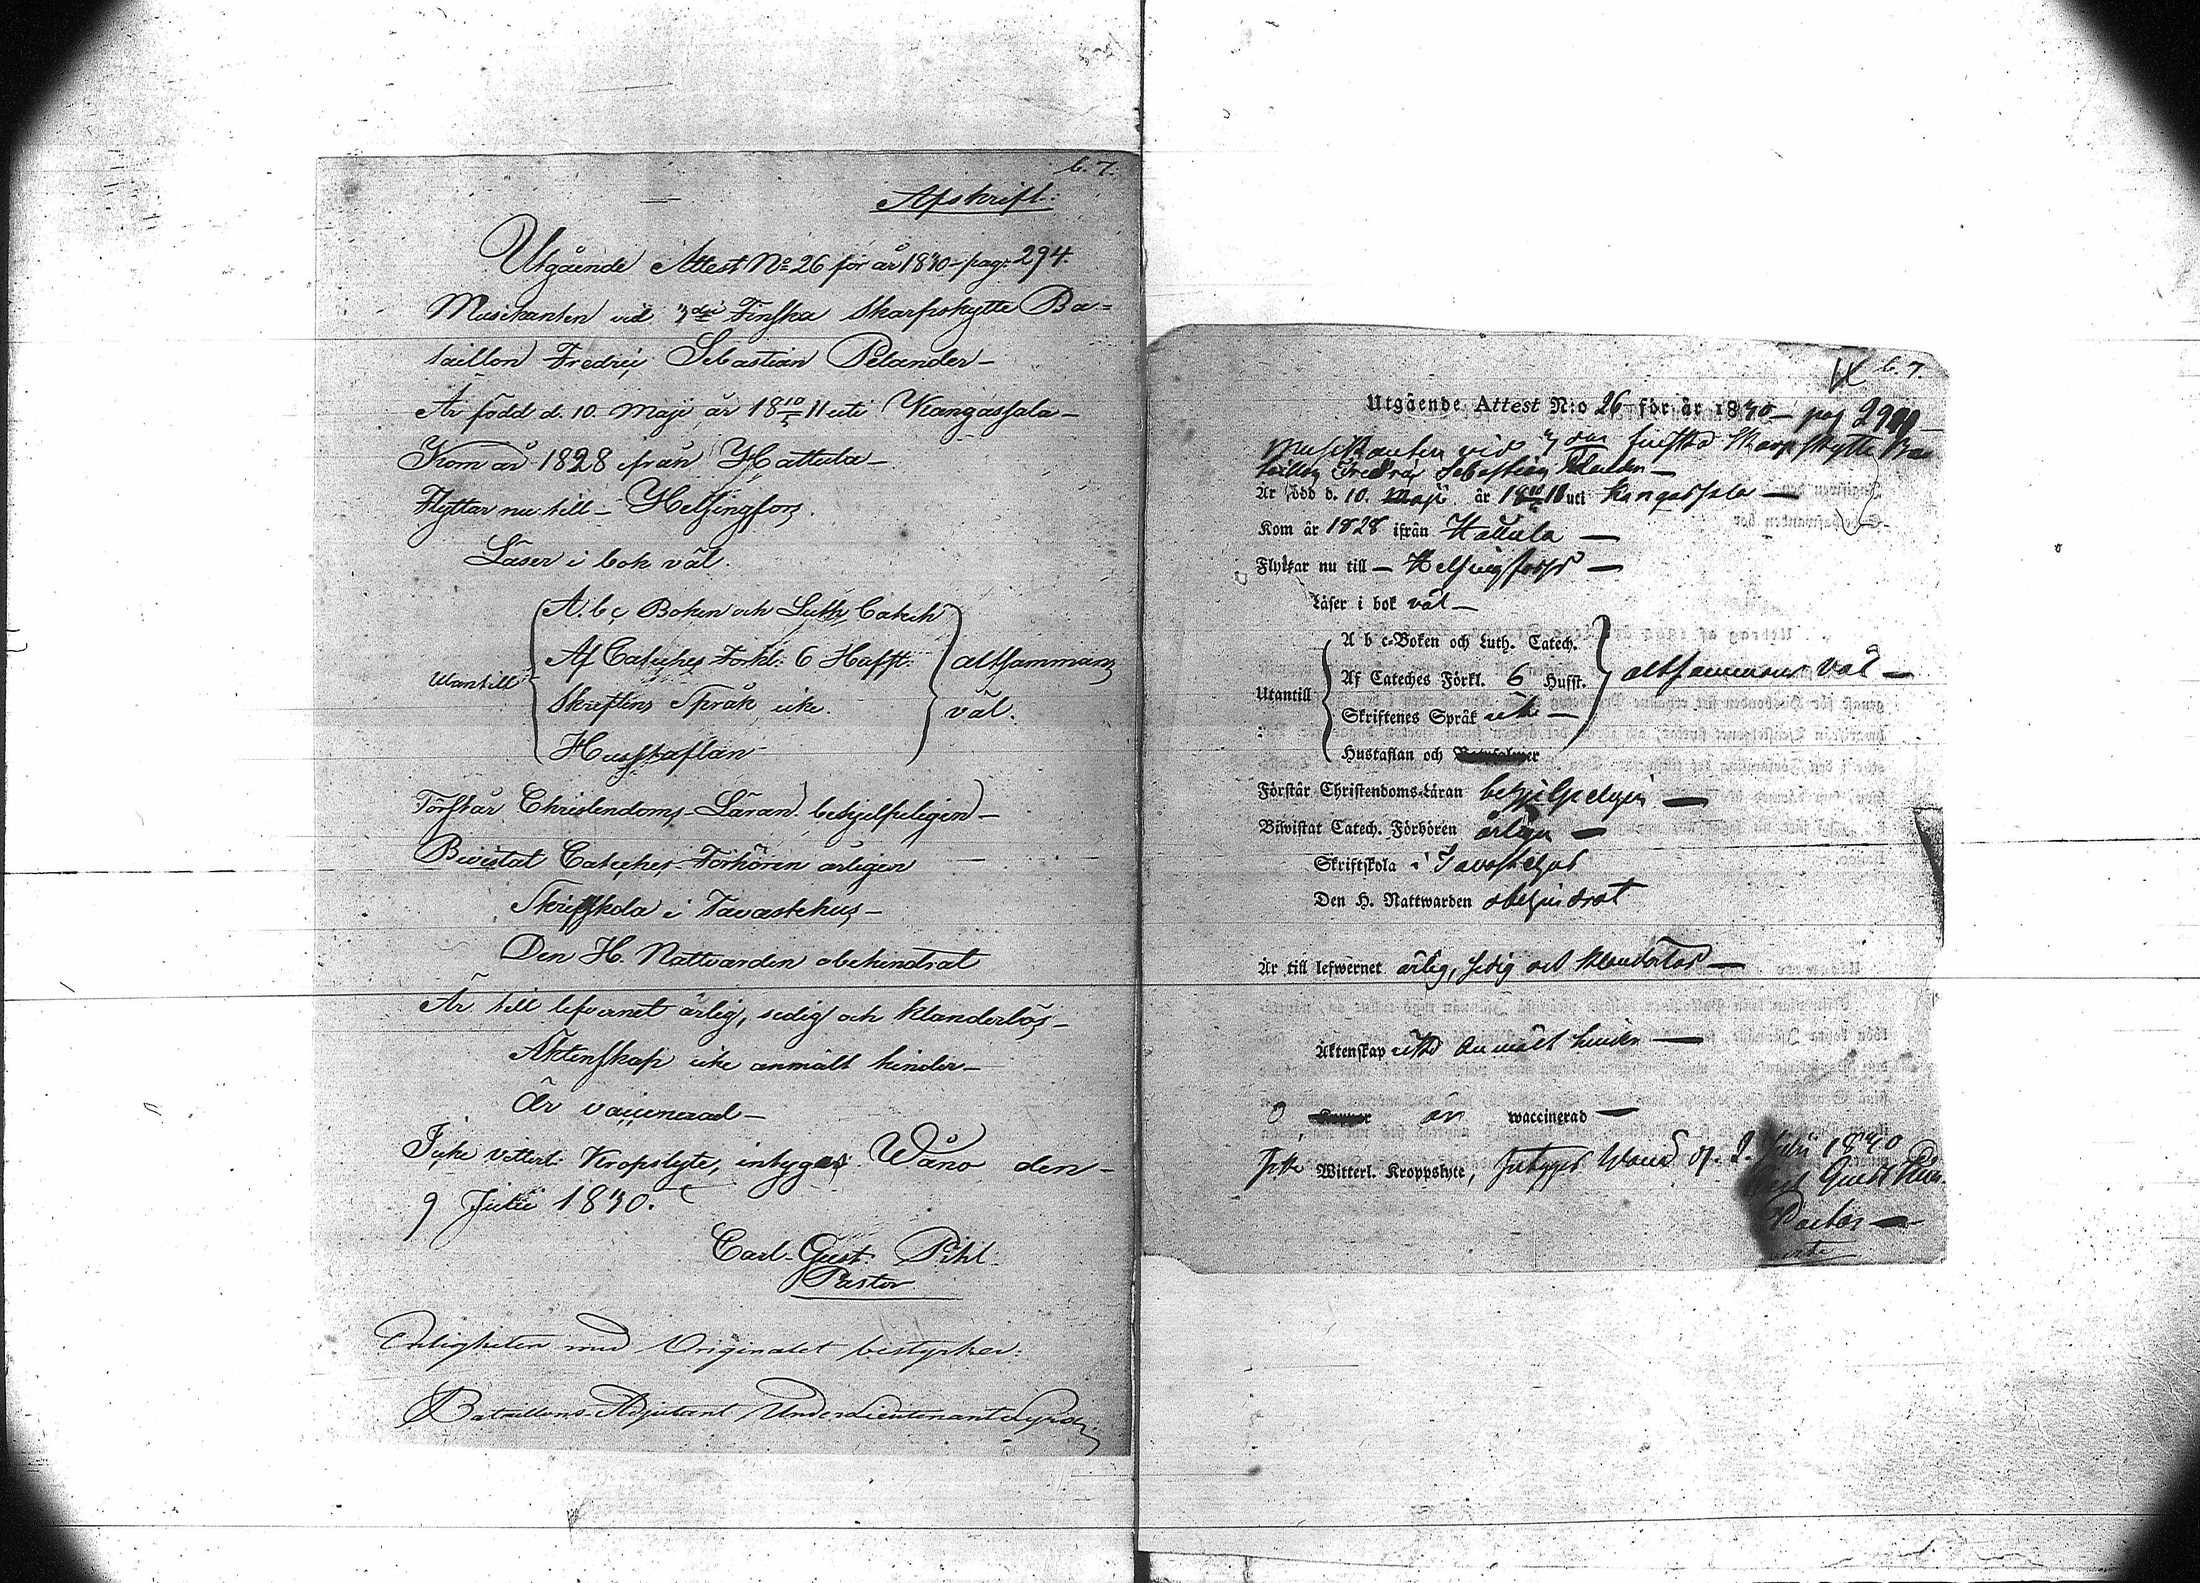 b. 7.
Afskrift:
Utgående Attest No 26 för år 1830 - pag: 294.
Musikanten vid 3dje Finska Skarpskytte Ba=
taillon Fredric Sebastian Pelander -
Är född d. 10. Maji år 18 10/5 11 uti Kangassala -
Kom år 1828 ifrån Hattula -
Flyttar nu till - Helsingfors.
Läser i bok väl.
Utantill
A. b. c Boken och Luth. Catech
Af Cateches Förkl: 6 Hufst.
Skriftens Språk icke.
Husstaflan
altsammans
väl.
Förstår Christendoms-Läran behjelpeligen -
Bivistat Cateches-Förhören årligen
Skriftskola i Tavastehus -
Den H. Nattvarden obehindrat
Är till lefvernet ärlig, sedig och klanderlös -
Äktenskap icke anmält hinder -
Är vaccinerad -
Icke vitterl: Kropslyte, intygas. Wånå den -
9 Julii 1830.
Carl Gust. Pihl.
Pastor
Enligheten med Originalet bestyrker:
Bataillons-Adjutant UnderLieutenant
b. 7.
Utgående Attest N:o 26 för år 1830 - pag
Musikanten vid 3dje finska Skarpskytte Ba
taillon Fredric Sebastian Pelander -
Är född d. 10. Maji år 18 10/5 11 uti Kangassala -
Kom år 1828 ifrån Hattula -
Flyttar nu till - Helsingfors -
Läser i bok väl -
Utantill
A b c-Boken och Luth. Catech.
Af Cateches Förkl. 6 Hufst.
Skriftenes Språk icke -
Hustaflan och
altsammans väl -
Förstår Christendoms-Läran behjelpeligen -
Biwistat Catech. Förhören årligen -
Skriftskola i Tavastehus
Den H. Nattwarden obehindrat
Är till lefwernet ärlig, sedig och klanderlös -
Äktenskap icke anmält hinder -
är waccinerad -
Icke Witterl. Kroppslyte, intygas Wånå d. 9. Julii 1830
Carl Gust Pihl
Pastor -